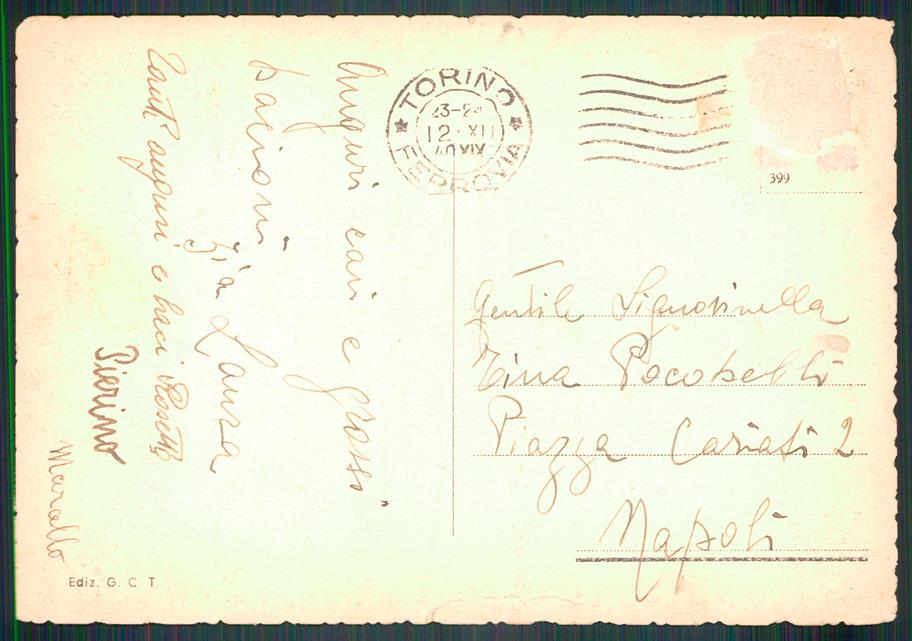 Auguri cari e grossi
bacioni
Zia Laura
Tanti auguri e baci Rosetta
Pierino
Marcello
Ediz. G. C. T.
TORINO
23-24
12·XII
40 XIX
FERROVIA
399
Gentile Signorinella
Tina
Piazza Cariati 2
Napoli